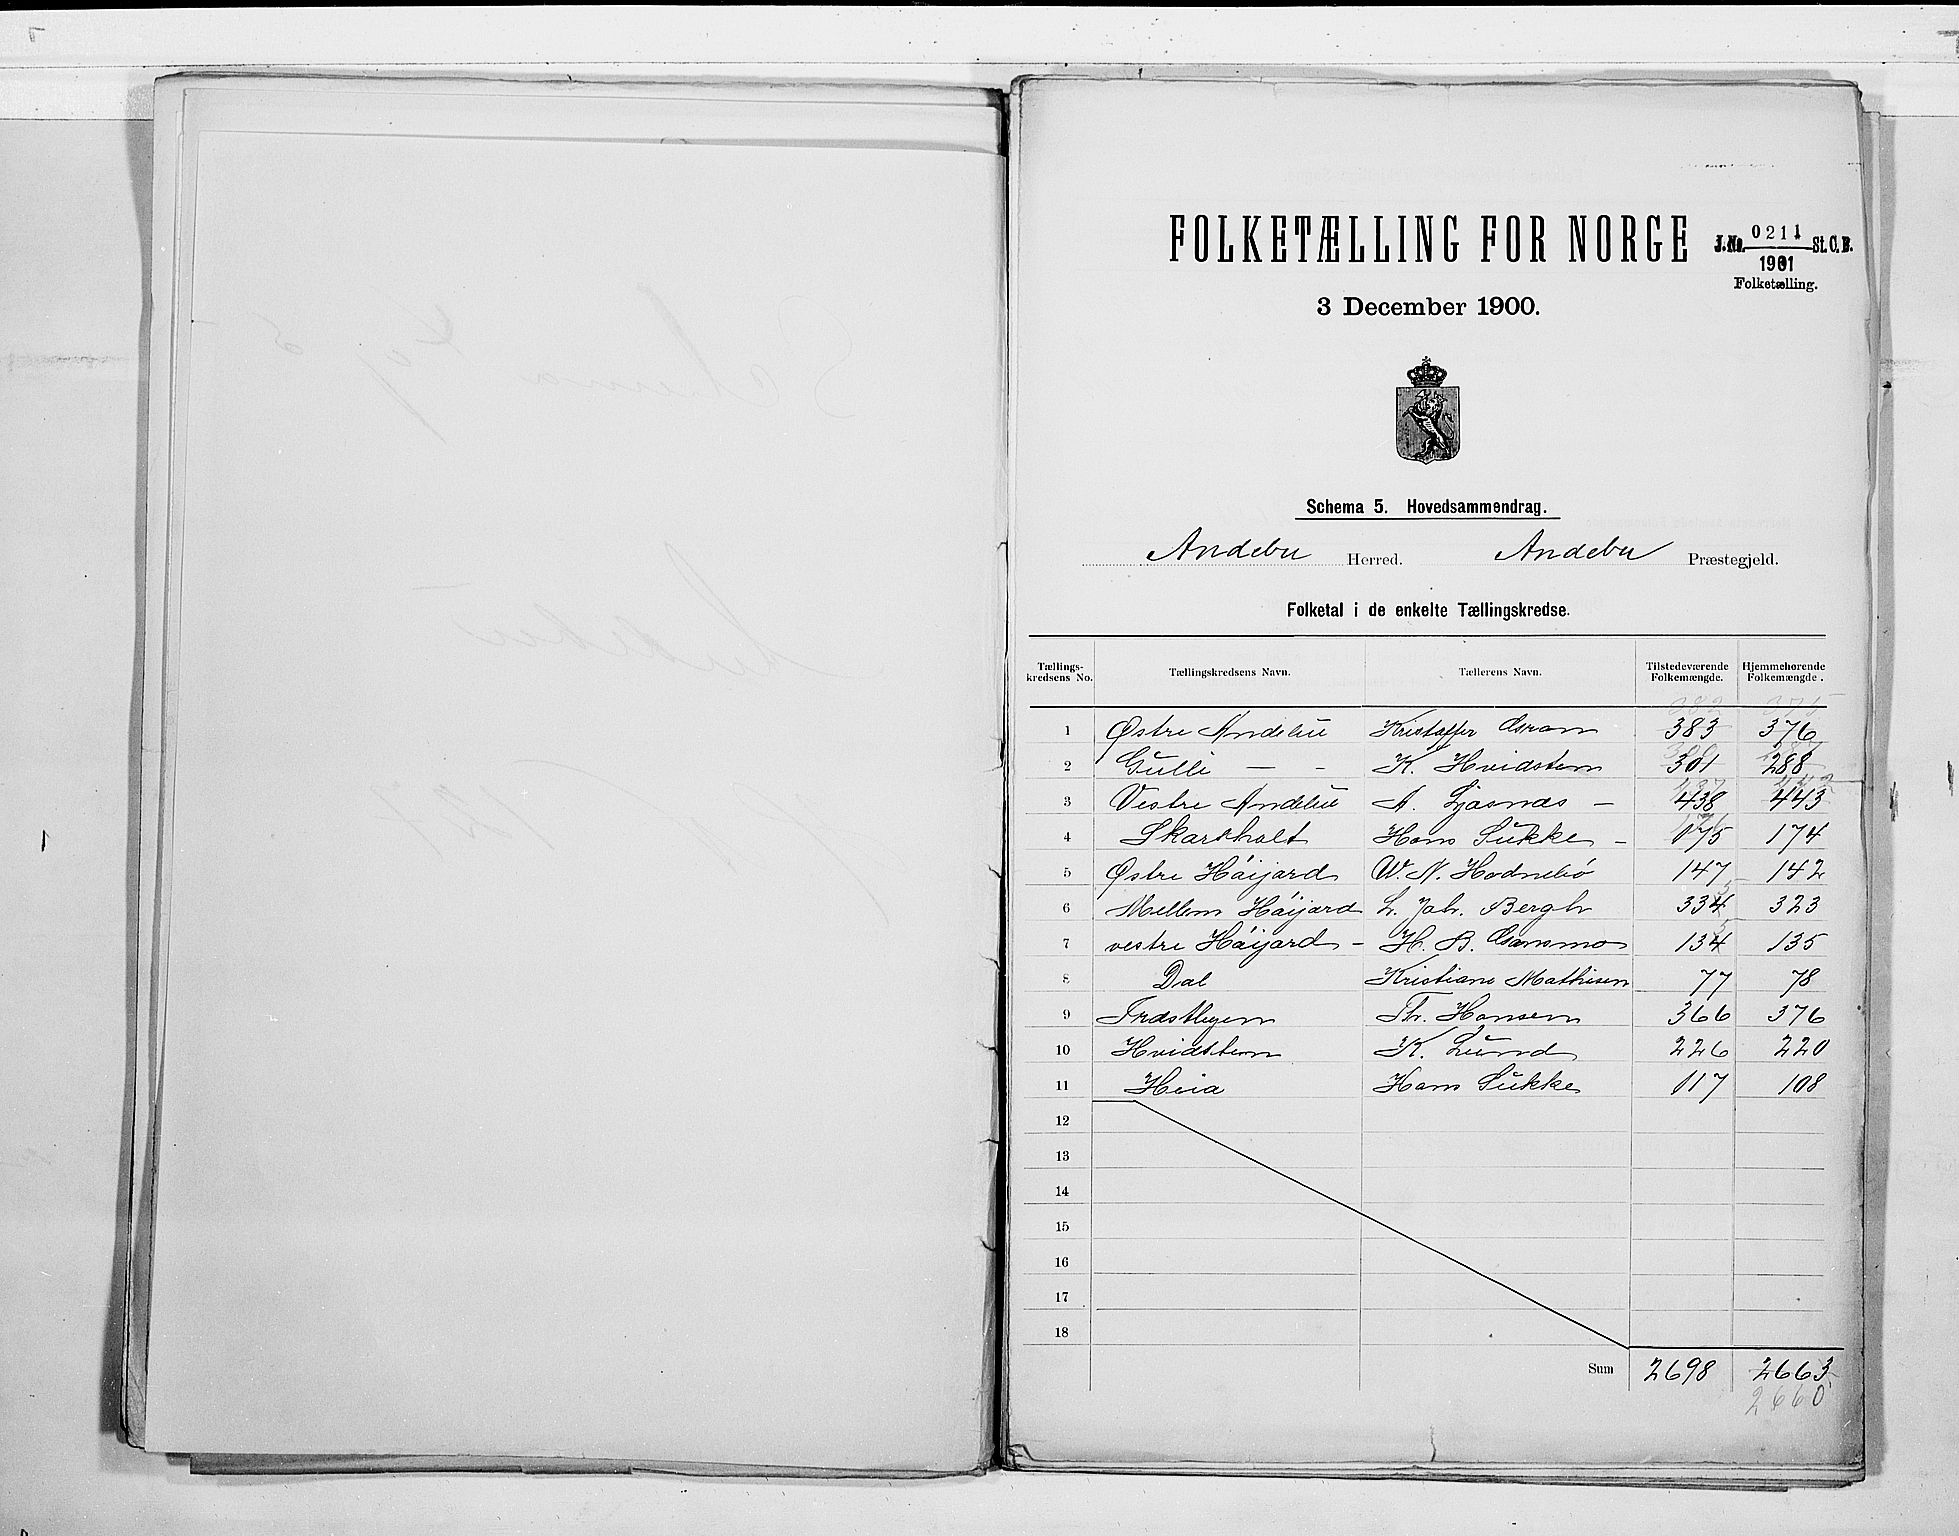 FOLKETÆLLING FOR NORGE
J.No. 0211 St. C. B.
1901
Folketælling.
3 December 1900.
Schema 5. Hovedsammendrag.
Andebu Herred. Andebu Præstegjeld.
Folketal i de enkelte Tællingskredse.
Tællings-kredsens No. Tællingskredsens Navn. Tællerens Navn. Tilstedeværende Folkemængde. Hjemmehørende Folkemængde.
1 Østre Andebu Kristoffer 383 376
2 Gulli — - K. Hvidstein 301 288
3 Vestre Andebu A. 438 443
4 Skarsholt Hans Sukke - 175 174
5 Østre Høijord W. N. Hodnebø 147 142
6 Mellem Høijord L. Joh. Bergh 334 323
7 vestre Høijord - H. B. 134 135
8 Dal Kristian Mathisen 77 78
9 Th. Hansen 366 376
10 Hvidstein K. Lund 226 220
11 Heia Hans Sukke 117 108
12
13
14
15
16
17
18
Sum 2698 2663
2660